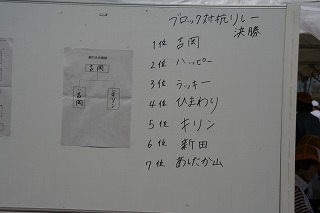 ブロック対抗リレー
決勝
1位 吉岡
2位 ハッピー
3位 ラッキー
4位 ひまわり
5位 キリン
6位 新田
7位 あしたか山
吉岡
吉岡
キリン